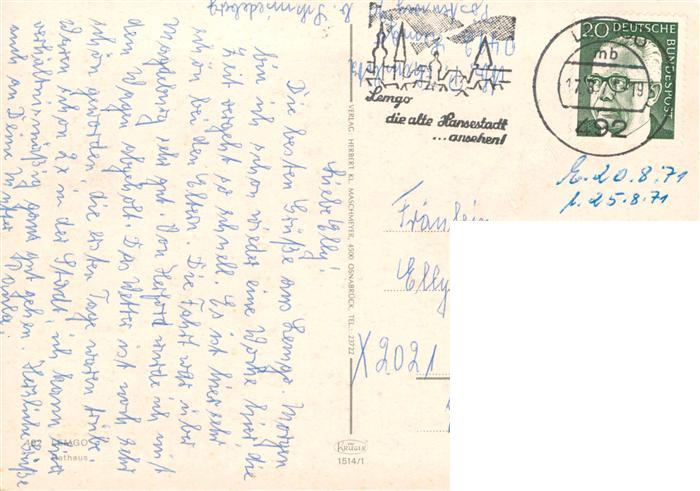 Liebe Elly!
Die besten Grüße aus Lemgo. Morgen
bin ich schon wieder eine Woche hier die
Zeit vergeht so schnell. Es ist hier sehr
schön bei den Eltern. Die Fahrt war über
Magdeburg sehr gut. Von Herford wurde ich mit
dem Wagen abgeholt. Das Wetter ist noch sehr
schön geworden die ersten Tage waren trübe.
Waren schon 2x in der Stadt, ich kann hier
verhältnismäßig ganz gut gehen. Herzliche Grüße
auch an Deine Mutter
492 LEMGO
Rathaus
VERLAG HERBERT KL. MASCHMEYER, 4500 OSNABRÜCK, TEL. 23722
KRÜGER
1514/1
Lemgo
die alte Hansestadt
...ansehen!
mb
492
20 DEUTSCHE
BUNDESPOST
E. 20.8.71
b. 25.8.71
Fräulein
Elly
X2021